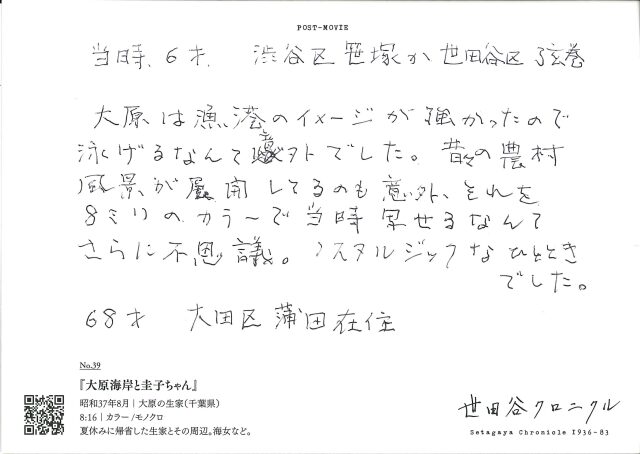 POST-MOVIE
当時、6才、 渋谷区笹塚か世田谷区弦巻
大原は漁港のイメージが強かったので
泳げるなんて意外でした。昔の農村
風景が展開してるのも意外、それを
8ミリのカラーで当時写せるなんて
さらに不思議。ノスタルジックなひととき
でした。
68才 大田区蒲田在住
No.39
『大原海岸と圭子ちゃん』
昭和37年8月|大原の生家(千葉県)
8:16|カラー/モノクロ
夏休みに帰省した生家とその周辺。海女など。
世田谷クロニクル
Setagaya Chronicle 1936-83